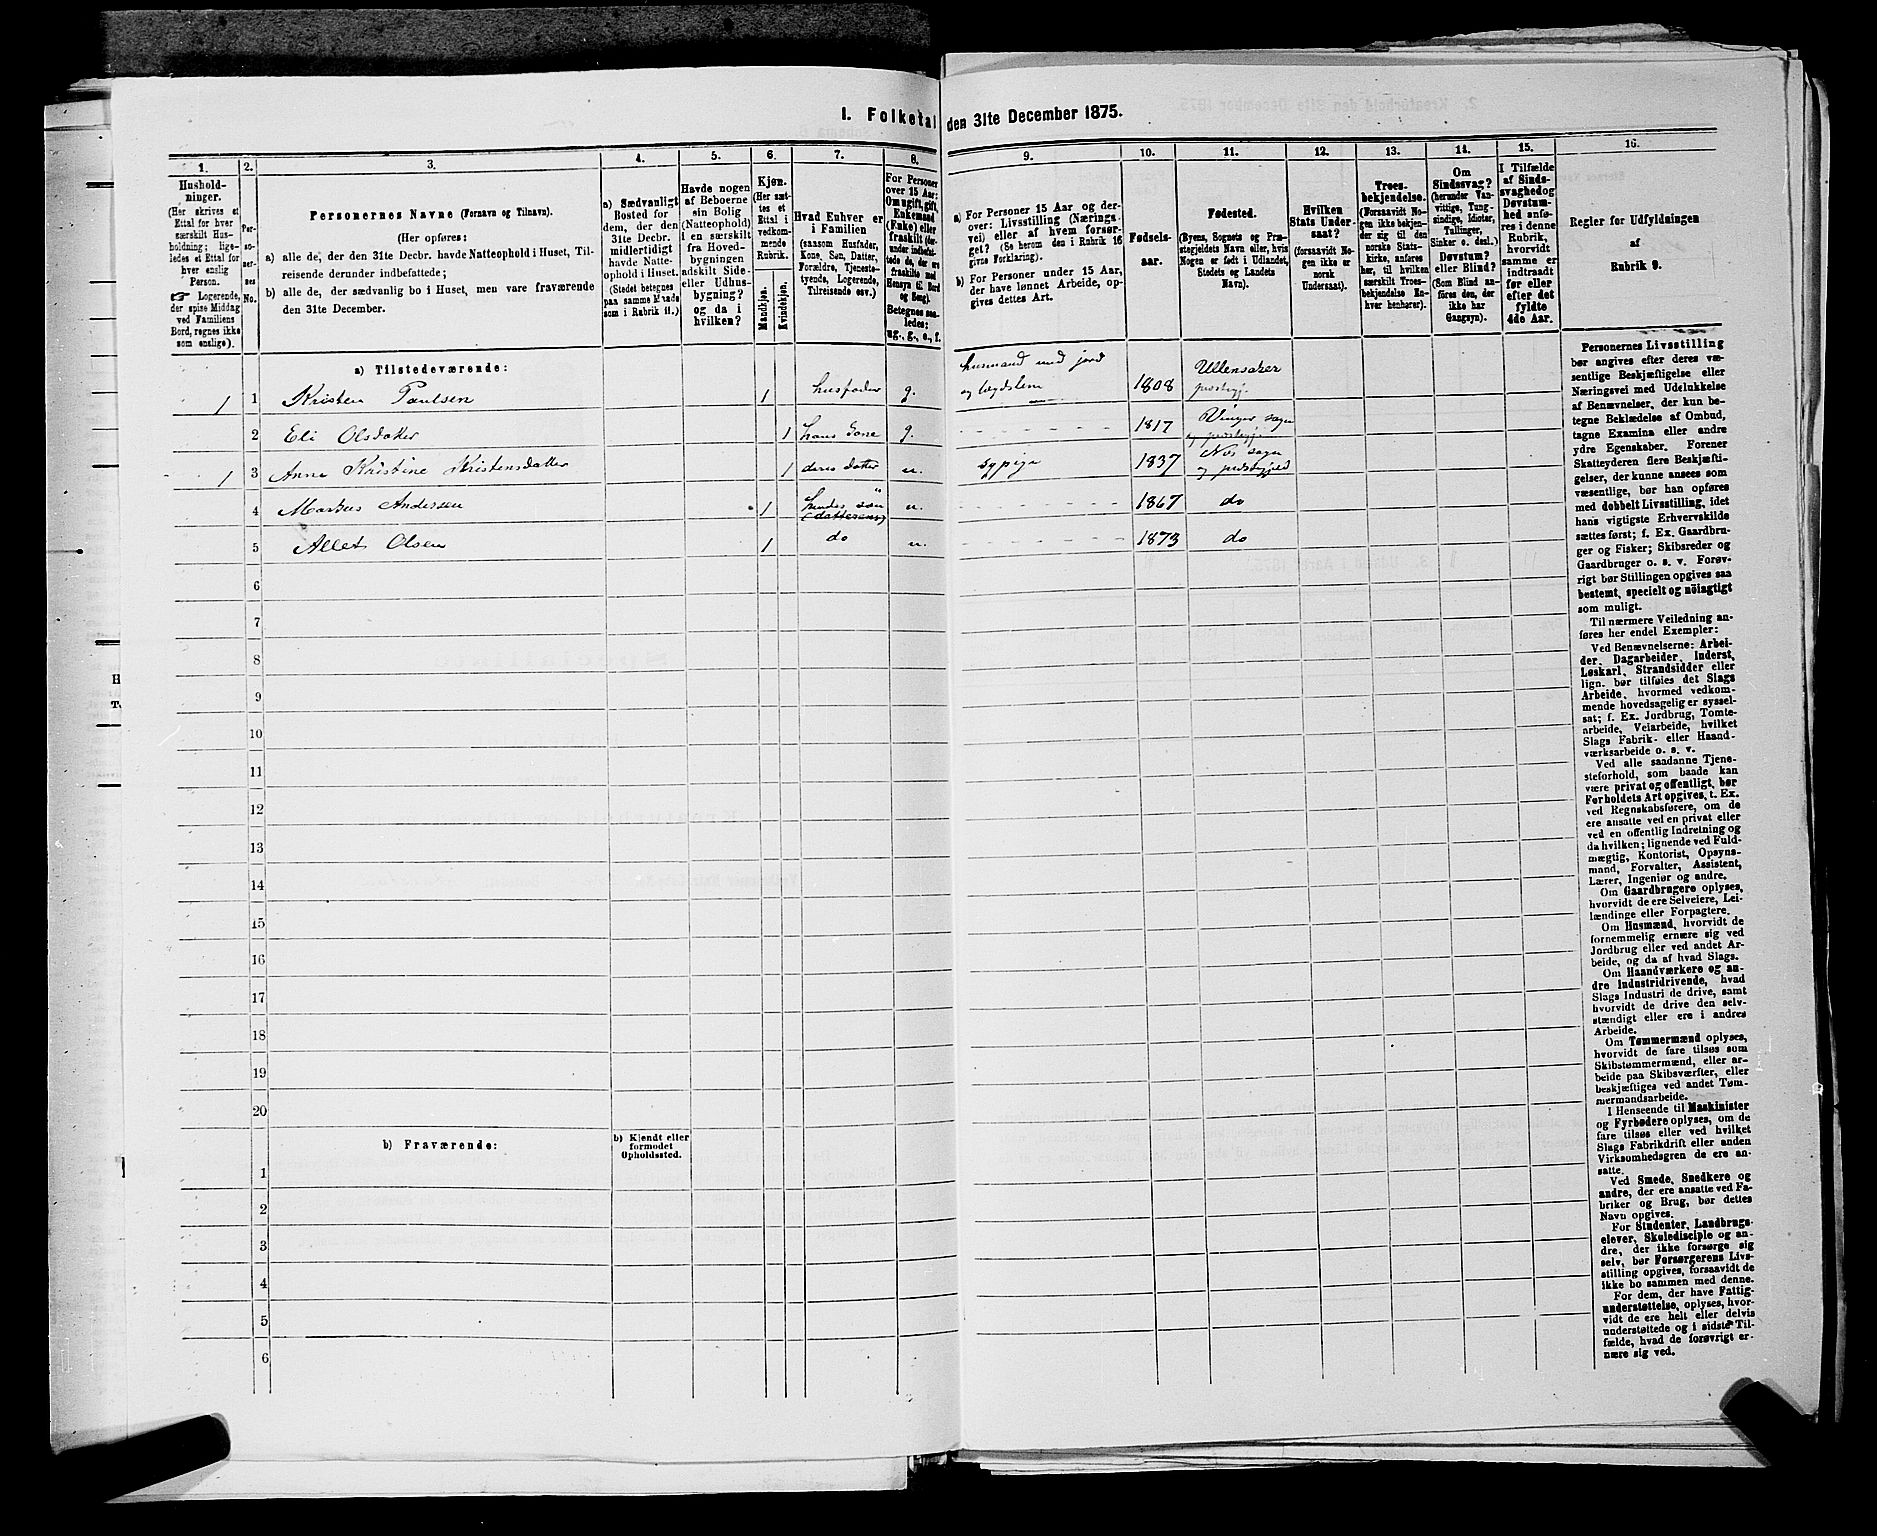 I. Folketal den 31te December 1875.
1.
Hushold-
ninger.
(Her skrives et
Ettal for hver
særskilt Hus-
holdning; lige-
ledes et Ettal for
hver enslig
Person.
☞ Logerende,
der spise Middag
ved Familiens
Bord, regnes ikke
som enslige).
2.
Per-
so-
ner-
nes
No.
3.
Personernes Navne (Fornavn og Tilnavn).
(Her opføres:
a) alle de, der den 31te Decbr. havde Natteophold i Huset, Til-
reisende derunder indbefattede;
b) alle de, der sædvanlig bo i Huset, men vare fraværende
den 31te December.
4.
a) Sædvanligt
Bosted for
dem, der den
31te Decbr.
midlertidigt
havde Natte-
ophold i Huset.
(Stedet betegnes
paa samme Maade
som i Rubrik 11.)
5.
Havde nogen
af Beboerne
sin Bolig
(Natteophold)
i en særskilt
fra Hoved-
bygningen
adskilt Side-
eller Udhus-
bygning?
og da i
hvilken?
6.
Kjøn.
(Her sæt-
tes et
Ettal i
vedkom-
mende
Rubrik.
Mandkjøn.
Kvindekjøn.
7.
Hvad Enhver er
i Familien
(saasom Husfader,
Kone, Søn, Datter,
Forældre, Tjeneste-
tyende, Logerende,
Tilreisende osv.)
8.
For Personer
over 15 Aar:
Om ugift, gift,
Enkemand
(Enke) eller
fraskilt
Betegnes saa-
ledes:
ug., g., e., f.
9.
a) For Personer 15 Aar og der-
over: Livsstilling (Nærings-
vei) eller af hvem forsør-
get? (Se herom den i Rubrik 16
givne Forklaring).
b) For Personer under 15 Aar,
der have lønnet Arbeide, op-
gives dettes Art.
10.
Fødsels-
aar.
11.
Fødested.
(Byens, Sognets og Præ-
stegjeldets Navn eller, hvis
Nogen er født i Udlandet,
Stedets og Landets
Navn).
12.
Hvilken
Stats Under-
saat?
(forsaavidt No-
gen ikke er
norsk
Undersaat).
13.
Troes-
bekjendelse.
(Forsaavidt No-
gen ikke bekjen-
der sig til den
norske Stats-
kirke, anføres
her, til hvilken
særskilt Troes-
bekjendelse En-
hver henhører).
14.
Om
Sindssvag?
(herunder Van-
vittige, Tung-
sindige, Idioter,
Tullinger,
Sinker o. desl.)
Døvstum?
eller Blind?
(Som Blind an-
føres den, der
ikke har
Gangsyn).
15.
I Tilfælde
af Sinds-
svaghed og
Døvstum-
hed anfø-
res i denne
Rubrik,
hvorvidt
samme er
indtraadt
før eller
efter det
fyldte
4de Aar.
16.
Regler for Udfyldningen
af
Rubrik 9.
a) Tilstedeværende:
1 1 Kristen Paulsen 1 husfader g. husmand med jord og lægdslem 1808 Ullensaker prestgj.
2 Eli Olsdatter 1 hans kone g. 1817 Vinger sogn og prestegj.
1 3 Anne Kristine Kristensdatter 1 deres datter u. sypige 1837 Næs sogn og prestegjeld
4 Markus Andersen 1 hendes søn (datterens) u. 1867 do
5 Allet Olsen 1 do u. 1873 do
6
7
8
9
10
11
12
13
14
15
16
17
18
19
20
b) Fraværende:
b) Kjendt eller
formodet
Opholdssted.
1
2
3
4
5
6
Personernes Livsstilling
bør angives efter deres væ-
sentlige Beskjæftigelse eller
Næringsvei med Udelukkelse
af Benævnelser, der kun be-
tegne Beklædelse af Ombud,
tagne Examina eller andre
ydre Egenskaber. Forener
Skatteyderen flere Beskjæfti-
gelser, der kunne ansees som
væsentlige, bør han opføres
med dobbelt Livsstilling, idet
hans vigtigste Erhvervskilde
sættes først; f. Ex. Gaardbru-
ger og Fisker; Skibsreder og
Gaardbruger o. s. v. Forøv-
rigt bør Stillingen opgives saa
bestemt, specielt og nöiagtigt
som muligt.
Til nærmere Veiledning an-
føres her endel Exempler:
Ved Benævnelserne: Arbei-
der, Dagarbeider, Inderst,
Løskarl, Strandsidder eller
lign. bør tilføies det Slags
Arbeide, hvormed vedkom-
mende hovedsagelig er syssel-
sat; f. Ex. Jordbrug, Tomte-
arbeide, Veiarbeide, hvilket
Slags Fabrik- eller Haand-
værksarbeide o. s. v.
Ved alle saadanne Tjene-
steforhold, som baade kan
være privat og offentligt, bør
Forholdets Art opgives, t. Ex.
ved Regnskabsførere, om de
ere ansatte ved en privat eller
ved en offentlig Indretning og
da hvilken; lignende ved Fuld-
mægtig, Kontorist, Opsyns-
mand, Forvalter, Assistent,
Lærer, Ingeniør og andre.
Om Gaardbrugere oplyses,
hvorvidt de ere Selveiere, Lei-
lændinge eller Forpagtere.
Om Husmænd, hvorvidt de
fornemmelig ernære sig ved
Jordbrug eller ved andet Ar-
beide, og da af hvad Slags.
Om Haandværkere og an-
dre Industridrivende, hvad
Slags Industri de drive, samt
hvorvidt de drive den selv-
stændigt eller ere i andres
Arbeide.
Om Tømmermænd oplyses,
hvorvidt de fare tilsøs som
Skibstømmermænd, eller ar-
beide paa Skibsværfter, eller
beskjæftiges ved andet Tøm-
mermandsarbeide.
I Henseende til Maskinister
og Fyrbødere oplyses, om de
fare tilsøs eller ved hvilket
Slags Fabrikdrift eller anden
Virksomhedsgren de ere an-
satte.
Ved Smede, Snedkere og
andre, der ere ansatte ved Fa-
briker og Brug, bør dettes
Navn opgives.
For Studenter, Landbrugs-
elever, Skoledisciple og an-
dre, der ikke forsørge sig
selv, bør Forsørgerens Livs-
stilling opgives, forsaavidt de
ikke bo sammen med denne.
For dem, der have Fattig-
understøttelse, oplyses, hvor-
vidt de ere helt eller delvis
understøttede og i sidste Til-
fælde, hvad de forøvrigt er-
nære sig ved.